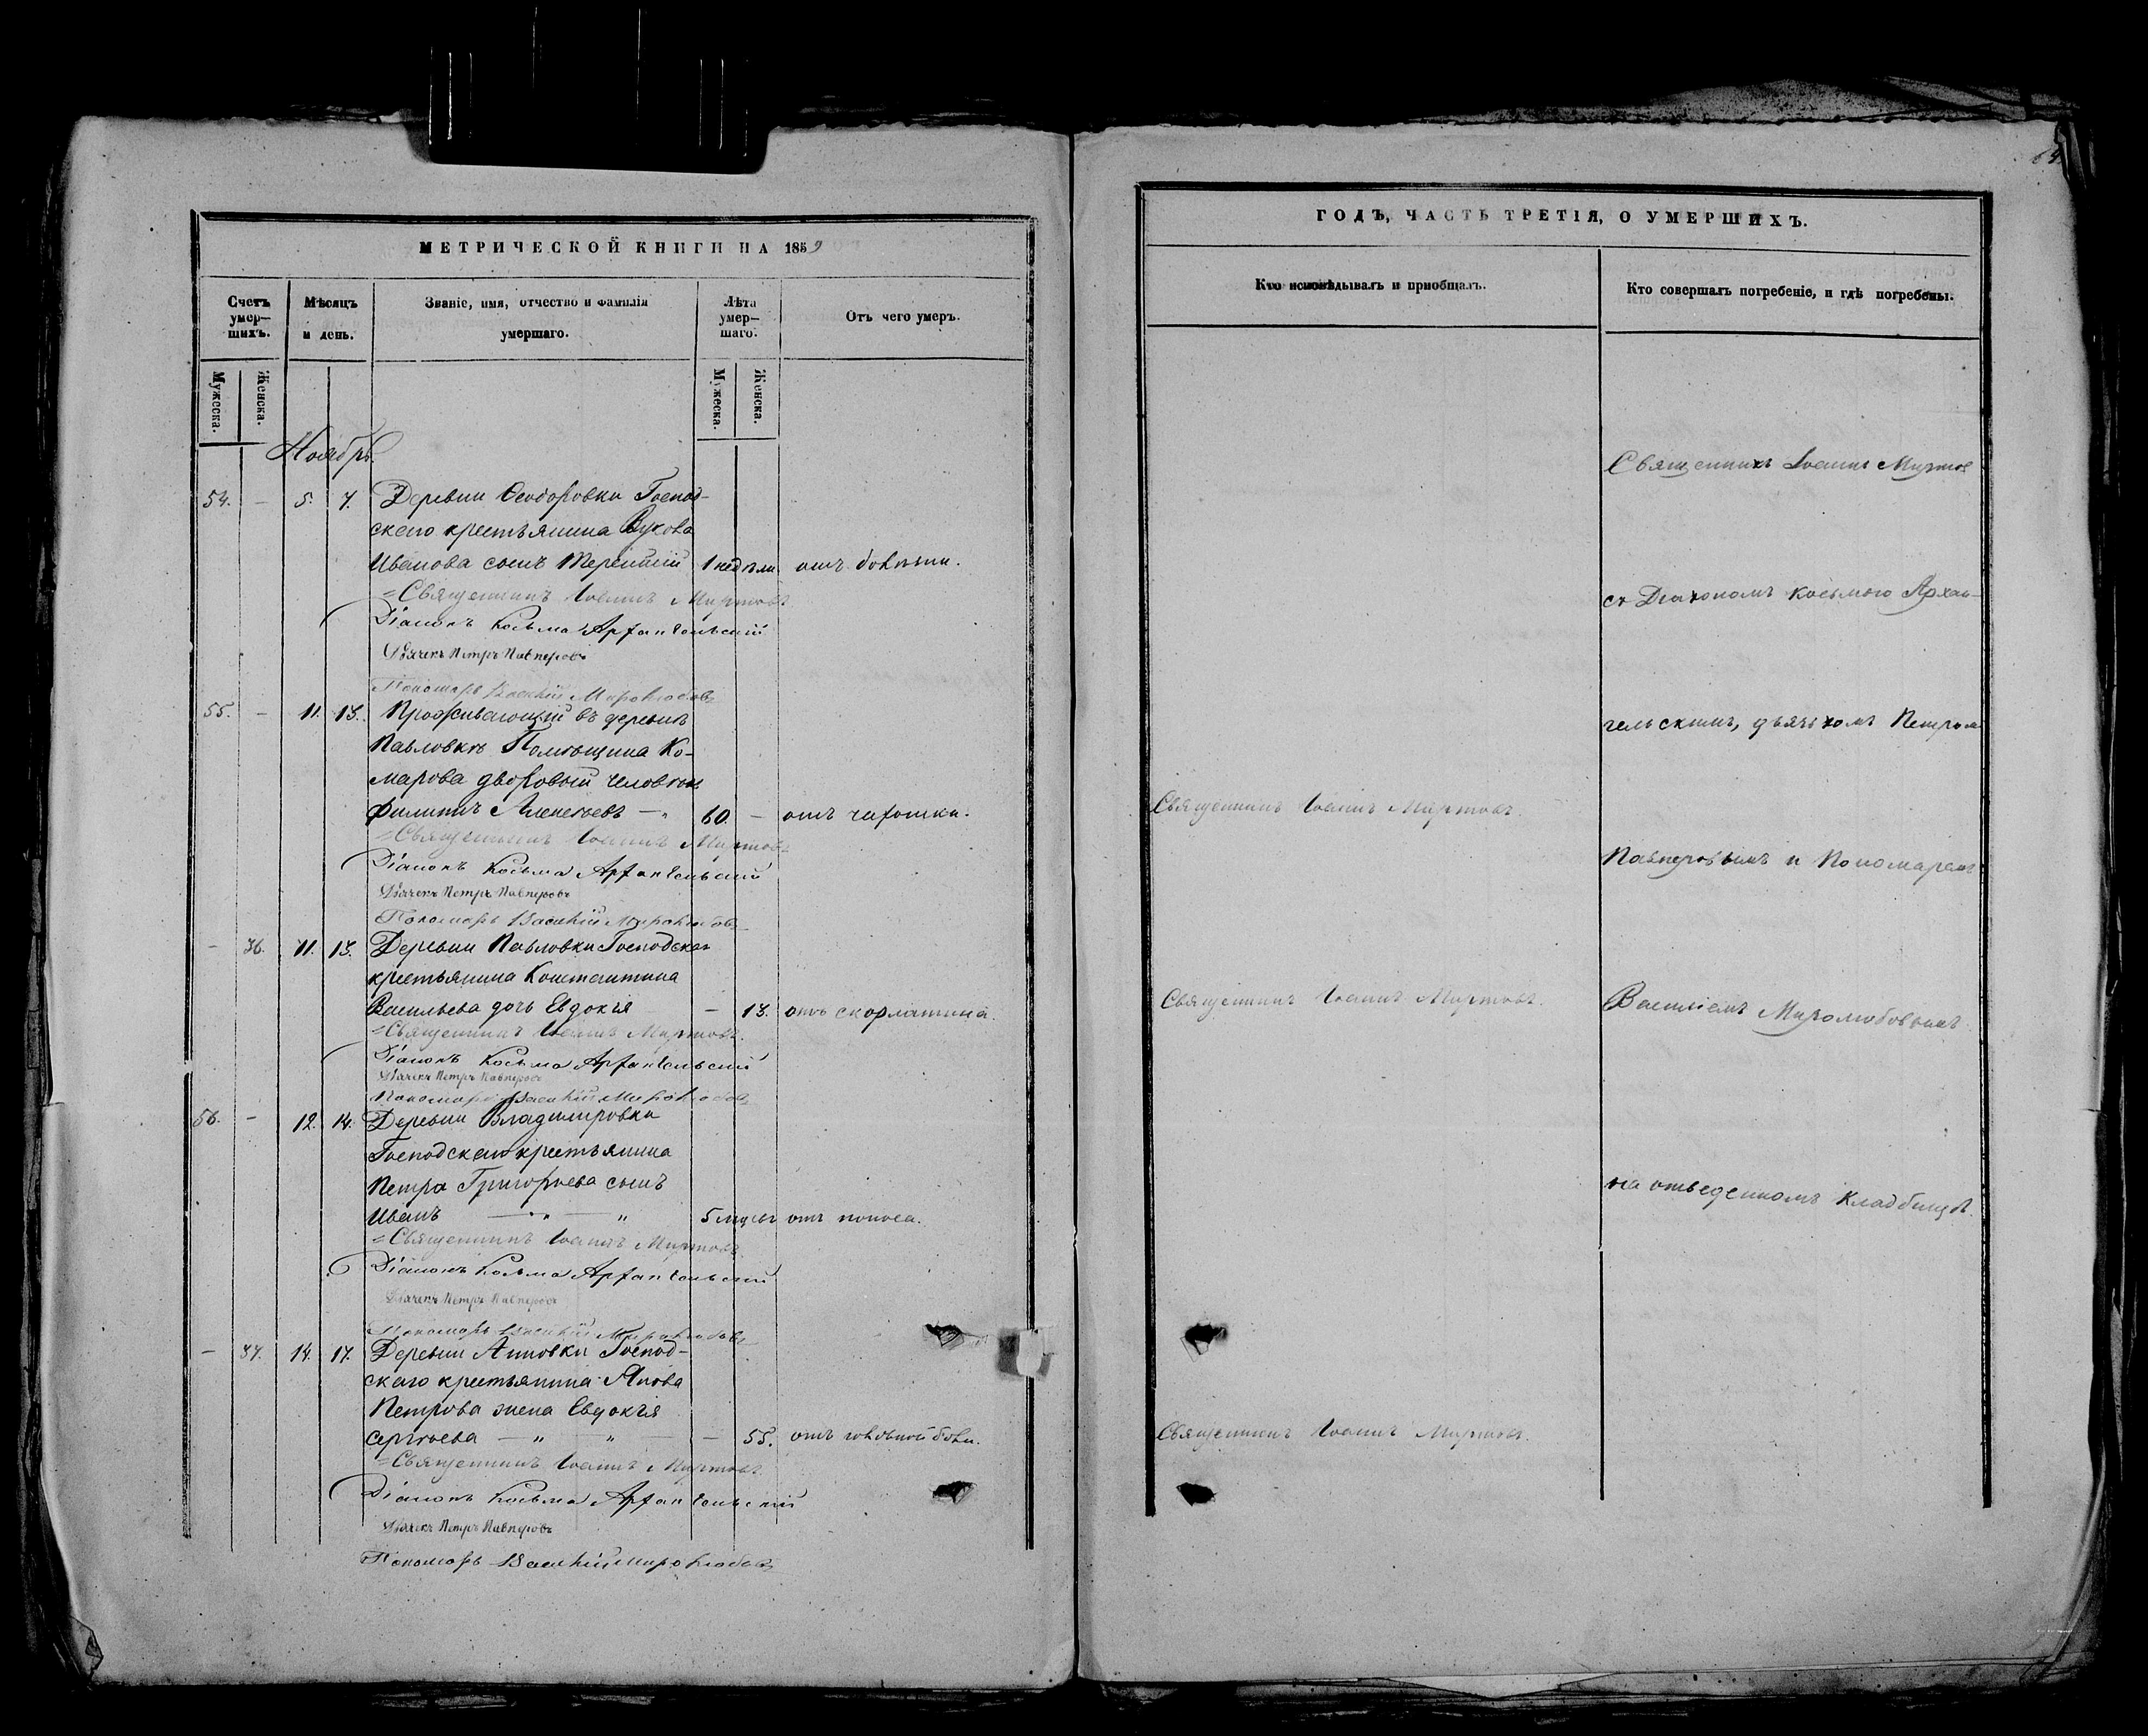 МЕТРИЧЕСКОЙ КНИГИ НА 1859
Счетъ умер-шихъ.
Мѣсяцъ и день.
Званіе, имя, отчество и фамилія умершаго.
Лѣта умер-шаго.
Отъ чего умеръ.
Мужеска.
Женска.
Мужеска.
Женска.
Ноябрь.
54. — 5. 7. Деревни Ѳеодоровки Господ-
скаго крестьянина
Иванова сынъ Терентій 1 недѣли отъ болѣзни.
Священникъ Іоаннъ Миртовъ
Діаконъ Косьма Архангельскій
Дьячекъ Петръ Павперовъ
Пономарь Василій Миролюбовъ
55. — 11. 13. Проживающій въ деревнѣ
Павловкѣ Помѣщика Ко-
марова дворовый человѣкъ
Филиппъ Алексѣевъ — 60. — отъ чахотки.
Священникъ Іоаннъ Миртовъ
Діаконъ Косьма Архангельскій
Дьячекъ Петръ Павперовъ
Пономарь Василій Миролюбовъ
— 36. 11. 13. Деревни Павловки Господскаго
крестьянина Константина
Васильева дочь Евдокія — 13. отъ скорлатина.
Священникъ Іоаннъ Миртовъ.
Діаконъ Косьма Архангельскій
Дьячекъ Петръ Павперовъ
Пономарь Василій Миролюбовъ
56. — 12. 14. Деревни Владимировки
Господскаго крестьянина
Петра Григорьева сынъ
Иванъ — " — " 5 мѣсяц отъ поноса.
Священникъ Іоаннъ Миртовъ.
Діаконъ Косьма Архангельскій
Дьячекъ Петръ Павперовъ
Пономарь Василій Миролюбовъ
— 37. 14. 17. Деревни Анновки Господ-
скаго крестьянина Якова
Петрова жена Евдокія
Сергѣева — " — " — 55. отъ головной боли.
Священникъ Іоаннъ Миртовъ
Діаконъ Косьма Архангельскій
Дьячекъ Петръ Павперовъ
Пономарь Василій Миролюбовъ
ГОДЪ, ЧАСТЬ ТРЕТІЯ, О УМЕРШИХЪ.
Кто исповѣдывалъ и пріобщалъ.
Кто совершалъ погребеніе, и гдѣ погребены.
Священникъ Іоаннъ Миртов
съ Діакономъ Косьмою Архан-
гельскимъ, дьячкомъ Петромъ
Священникъ Іоаннъ Миртовъ.
Павперовымъ и Пономаремъ
Священникъ Іоаннъ Миртовъ.
Василіемъ Миролюбовымъ
на отведенномъ кладбищѣ.
Священникъ Іоаннъ Миртовъ.